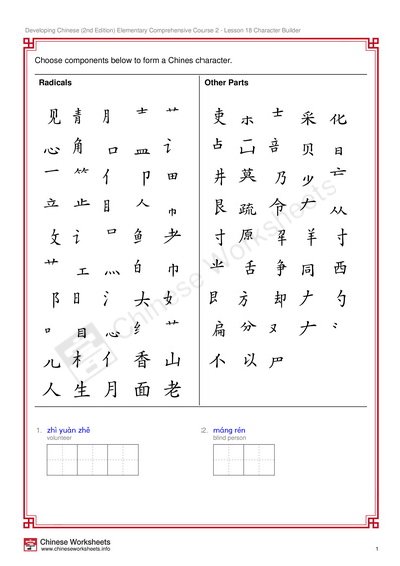 Developing Chinese (2nd Edition) Elementary Comprehensive Course 2 - Lesson 18 Character Builder
Choose components below to form a Chines character.
Radicals
见 青 月 龶 艹
心 角 口 皿 讠
一 ⺮ 亻 卩 田
立 止 目 人 巾
攵 讠 罒 鱼 耂
艹 工 灬 白 巾
阝 日 氵 大 女
口 目 心 纟 艹
儿 木 亻 香 山
人 生 月 面 老
Other Parts
吏 ホ 士 采 化
占 二 音 贝 日
井 莫 乃 少 亡
艮 疏 令 𠂇 从
寸 原 羊 寸
业 舌 争 同 西
艮 方 却 𠂇 勺
扁 分 又 𠂇 冫
不 以 尸
Chinese Worksheets
1. zhì yuàn zhě
volunteer
2. máng rén
blind person
Chinese Worksheets
www.chineseworksheets.info
1